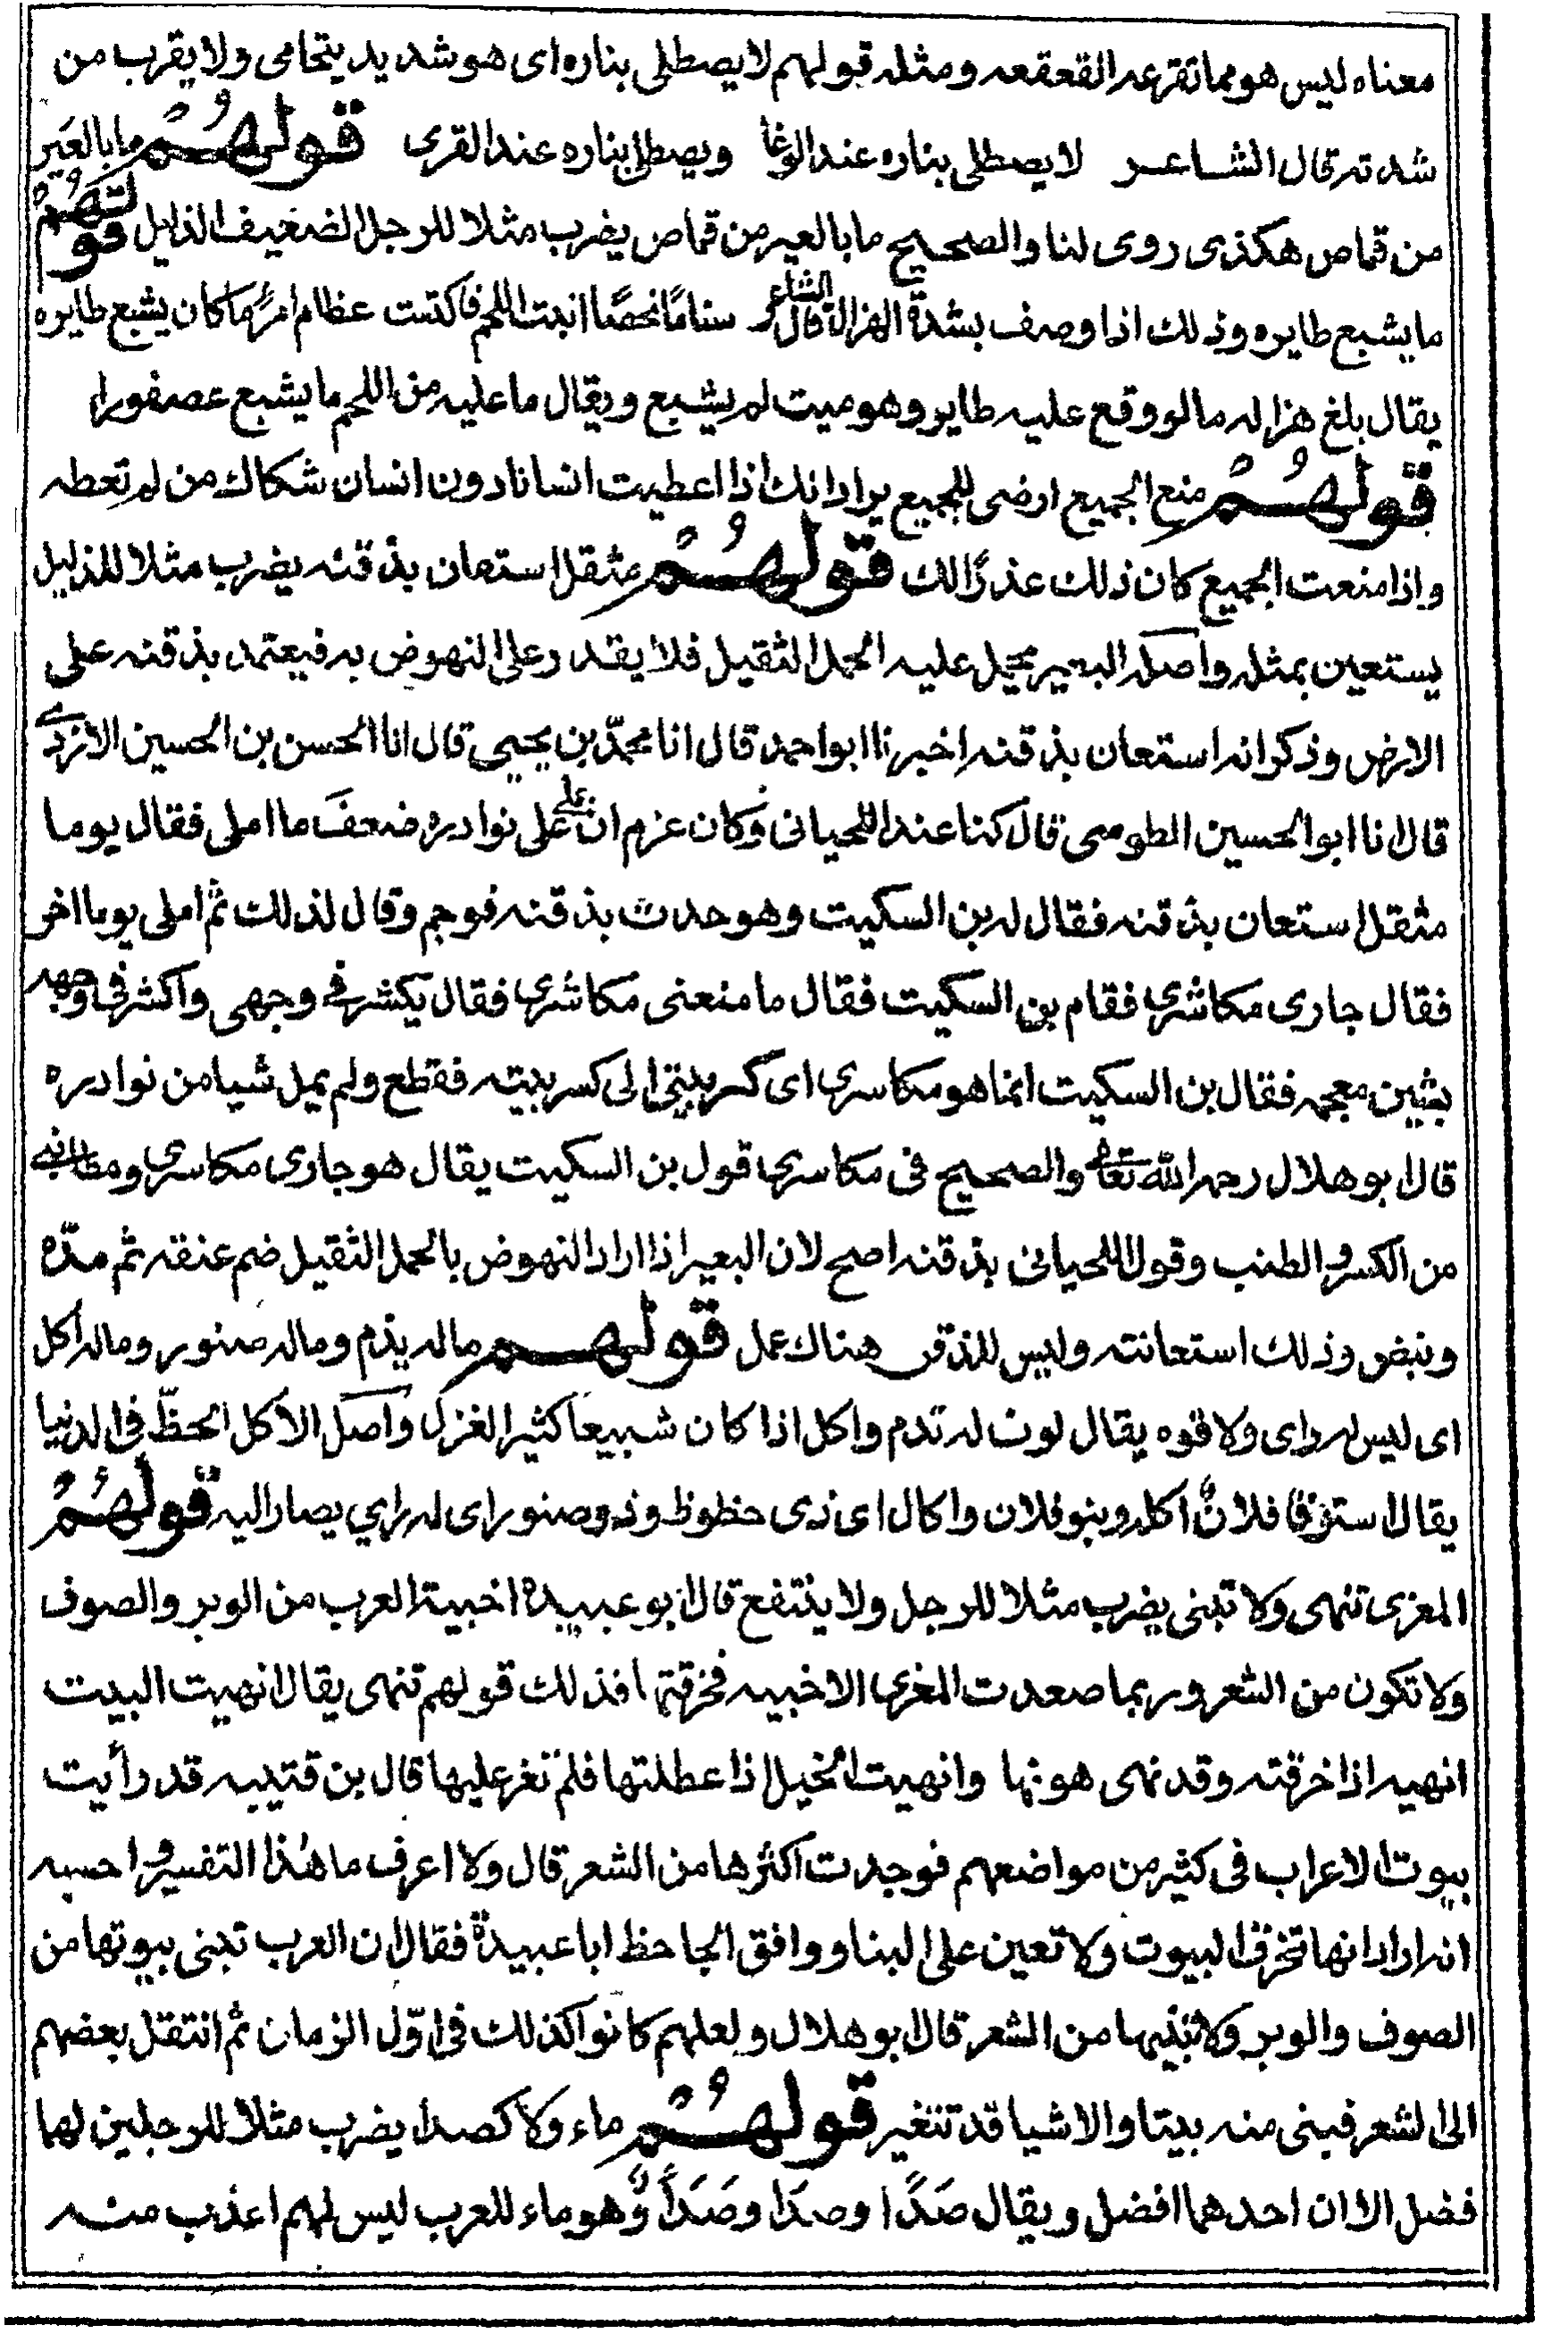 معناه ليس هو مما تقرعه القعقعه ومثله قولهم لا يصطلى بناره اى هو شديد يتحامى ولا يقرب من
شدته قال الشاعر لا يصطلى بناره عند الوغا ويصطلى بناره عند القرى قولهم ما بالعير
من قماص هكذى روى لنا والصحيح ما بالعير من قماص يضرب مثلا للرجل الضعيف الذليل قولهم
ما يشبع طايره وذلك اذا وصف بشدة الهزال قال الشاعر سنامًا نحضًا انبت اللحم فاكتست عظام امرًما كان يشبع طايره
يقال بلغ هزاله ما لو وقع عليه طاير وهو ميت لم يشبع ويقال ما عليه من اللحم ما يشبع عصفورا
قولهم منع الجميع ارضى للجميع يراد انك اذا اعطيت انسانا دون انسان شكاك من لم تعطه
واذا منعت الجميع كان ذلك عذرًا لك قولهم مثقل استعان بذقنه يضرب مثلا للذليل
يستعين بمثله واصله البعير يحمل عليه الحمل الثقيل فلا يقدر على النهوض به فيعتمد بذقنه على
الارض وذكر انه استعان بذقنه اخبرنا ابو احمد قال انا محمّد بن يحيى قال انا الحسن بن الحسين الازدى
قال انا ابو الحسين الطوسى قال كنا عند اللحيانى وكان عزم ان يملى على نوادره ضعف ما املى فقال يوما
مثقل استعان بذقنه فقال له بن السكيت وهو حدث بذقنه فوجم وقال لذلك ثم املى يوما اخر
فقال جارى مكاشرى فقام بن السكيت فقال ما منعنى مكاشرى فقال يكشر فى وجهى واكشر فى وجهه
بشين معجمه فقال بن السكيت انما هو مكاسرى اى كسر بيتى الى كسر بيته فقطع ولم يمل شيا من نوادره
قال ابو هلال رحمه الله تعالى والصحيح فى مكاسرى قول بن السكيت يقال هو جارى مكاسرى ومطانبى
من الكسر والطنب وقول اللحيانى بذقنه اصح لان البعير اذا اراد النهوض بالحمل الثقيل ضم عنقه ثم مدّه
ونهض وذلك استعانته وليس للذقن هناك عمل قولهم ماله يذم وماله صنور وماله اكل
اى ليس له راى ولا قوه يقال لوب له تدم واكل اذا كان شبيعا كثير الغزل واصل الاكل الحظّ فى الدنيا
يقال استوفا فلانٌ اكله وبنو فلان واكال اى ذى حظوظ وذو صنور اى له راى يصار اليه قولهم
المعزى تنهى ولا تبنى يضرب مثلا للرجل ولا ينتفع قال ابو عبيدة اخبية العرب من الوبر والصوف
ولا تكون من الشعر وربما صعدت المعزى الاخبيه فخرقتها فذلك قولهم تنهى يقال انهيت البيت
انهيه اذا خرقته وقد نهى هو نها وانهيت الخيل اذا عطلتها فلم تغر عليها قال بن قتيبه قد رأيت
بيوت الاعراب فى كثير من مواضعهم فوجدت اكثرها من الشعر قال ولا اعرف ما هذا التفسير واحسبه
انه اراد انها تخرق البيوت ولا تعين على البنا ووافق الجاحظ ابا عبيدة فقال ان العرب تبنى بيوتها من
الصوف والوبر ولا تبنيها من الشعر قال ابو هلال ولعلهم كانوا كذلك فى اوّل الزمان ثم انتقل بعضهم
الى الشعر فبنى منه بيتا والاشيا قد تتغير قولهم ماء ولا كصدا يضرب مثلا للرجلين لهما
فضل الا ان احدهما افضل ويقال صَدًا وصدَا وصَدَأٌ وهو ماء للعرب ليس لهم اعذب منه